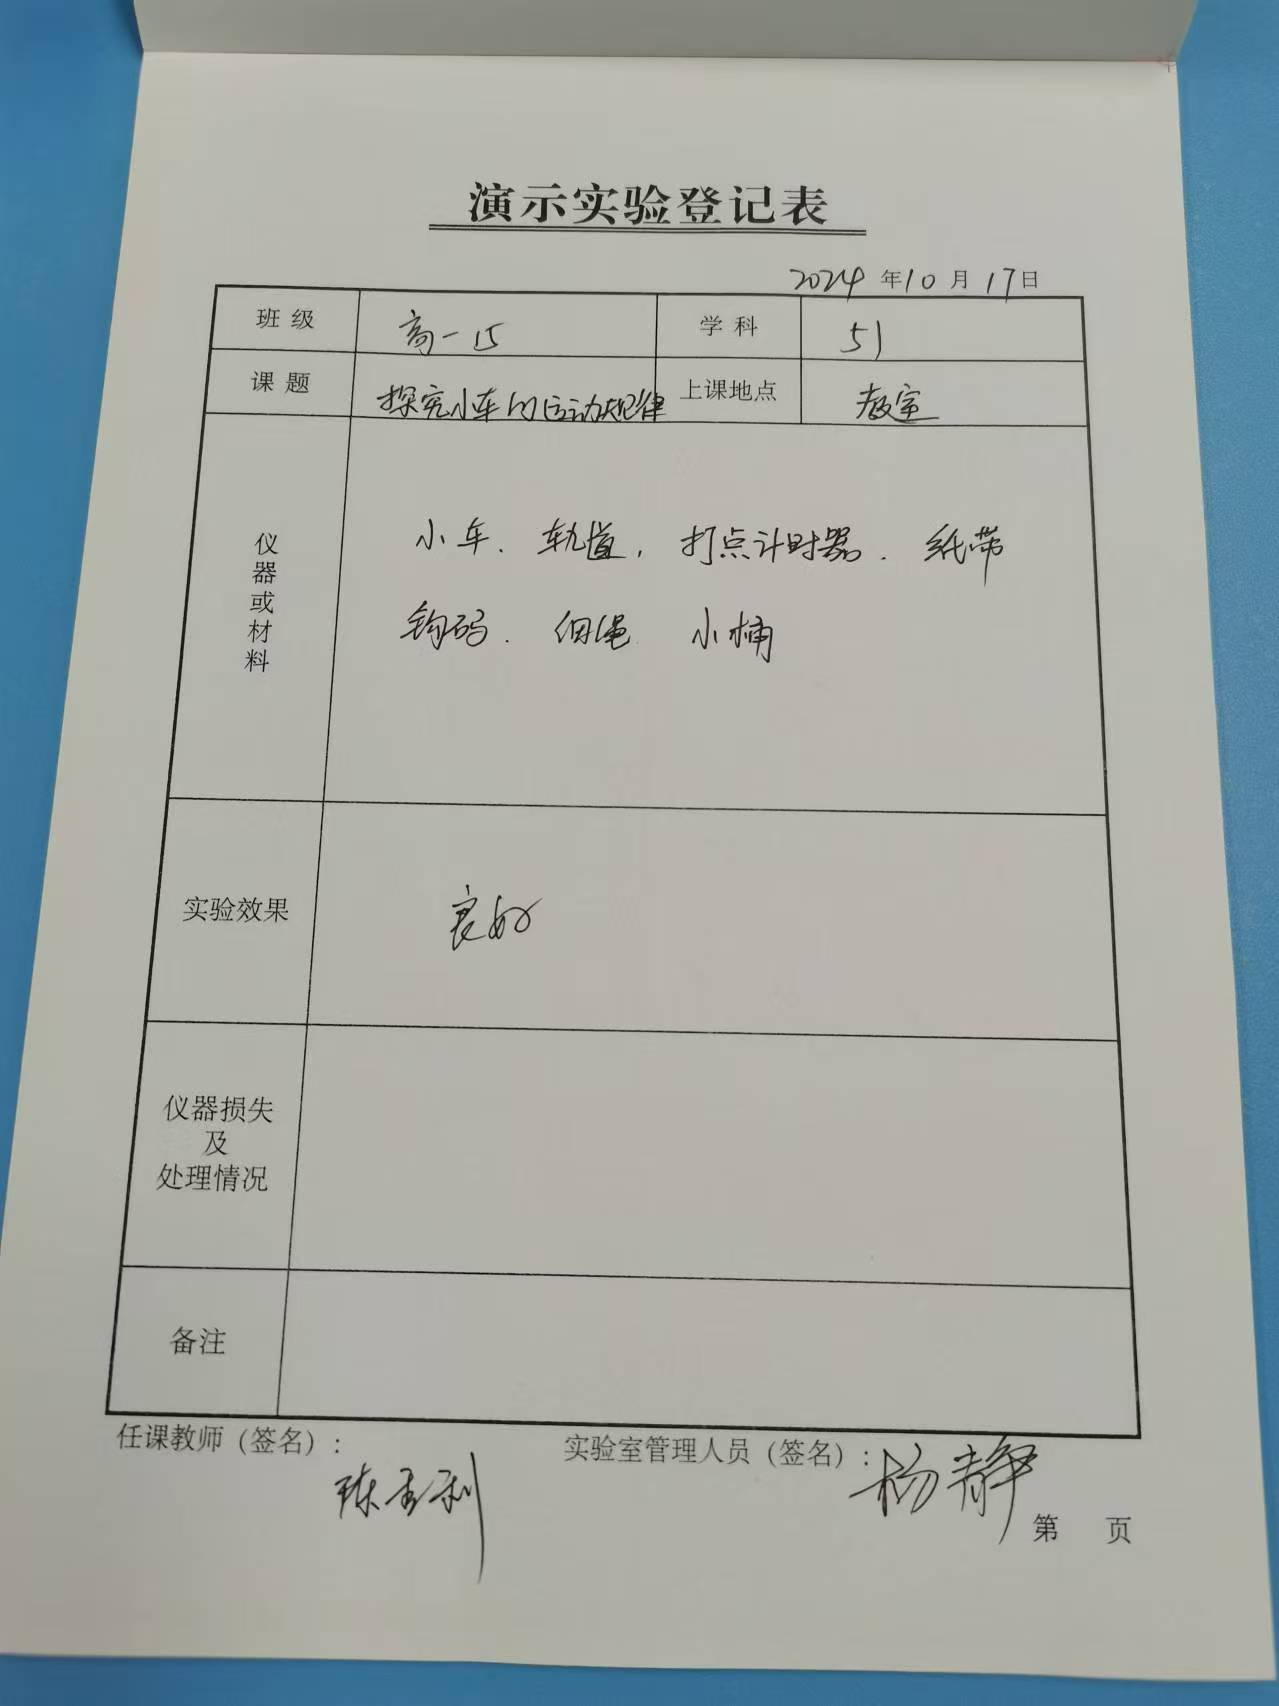 演示实验登记表
2024 年 10 月 17 日
班级 高一15 学科 51
课题 探究小车的运动规律 上课地点 教室
仪器或材料
小车、轨道，打点计时器、纸带
钩码、细绳 小桶
实验效果 良好
仪器损失
及
处理情况
备注
任课教师（签名）： 陈
实验室管理人员（签名）： 杨静
第 页